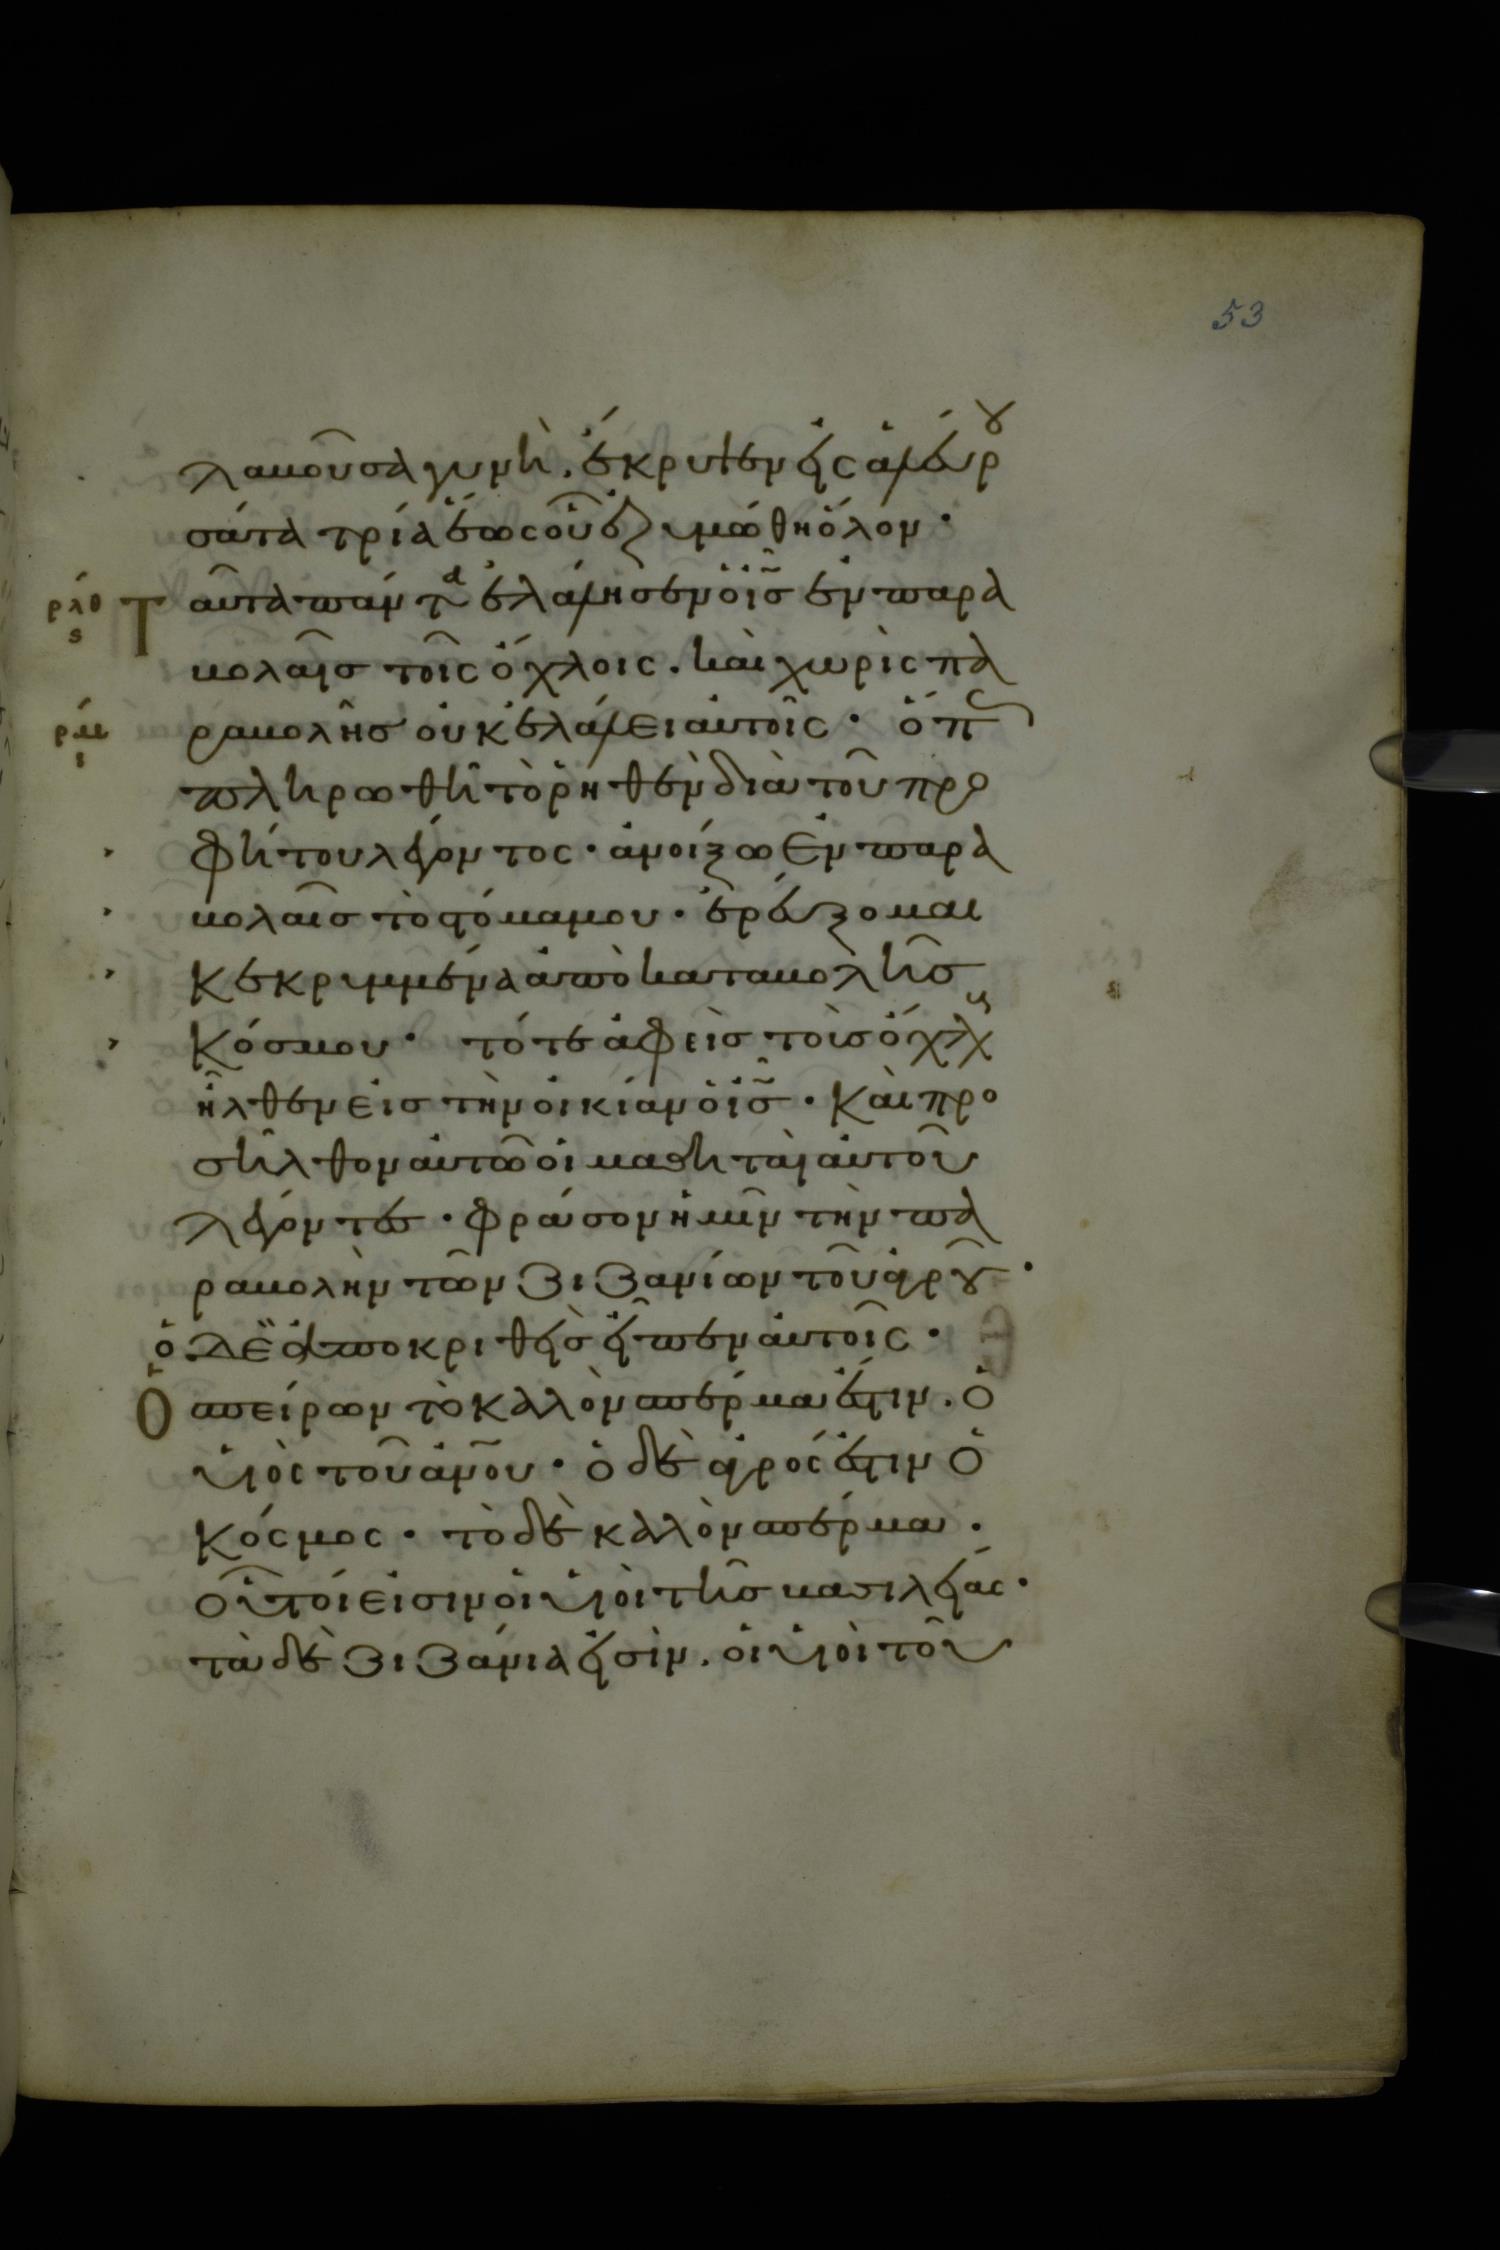 53
λαβοῦσα γυνὴ. ἔκρυψεν εἰς ἀλεύρου
σάτα τρία ἕως οὗ ἐζυμώθη ὅλον·
ρλθ ς Ταῦτα πάντα ἐλάλησεν ὁ ις̃ ἐν παρα
βολαῖς τοῖς ὄχλοις. καὶ χωρὶς πα
ρμ ι ραβολῆς οὐκ ἐλάλει αὐτοῖς· ὅπως
πληρωθῆ τὸ ῥηθὲν διὰ τοῦ προ
φήτου λέγοντος· ἀνοίξω ἐν παρα
βολαῖς τὸ στόμα μου· ἐρεύξομαι
κεκρυμμένα ἀπὸ καταβολῆς
κόσμου· τότε ἀφεὶς τοὺς ὄχλους
ἦλθεν εἰς τὴν οἰκίαν ὁ ις̃· καὶ προ
σῆλθον αὐτῶ οἱ μαθηταὶ αὐτοῦ
λέγοντες· φράσον ἡμῖν τὴν πα
ραβολὴν τῶν ζιζανίων τοῦ ἀγροῦ·
ὁ δὲ ἀποκριθεὶς εἶπεν αὐτοῖς·
Ὁ σπείρων τὸ καλὸν σπέρμα ἐστιν. ὁ
υἱὸς τοῦ ἀνου· ὁ δὲ ἀγρός ἐστιν ὁ
κόσμος· τὸ δὲ καλὸν σπέρμα.
οὗτοί εἰσιν οἱ υἱοὶ τῆς βασιλείας·
τὰ δὲ ζιζάνια εἰσὶν. οἱ υἱοὶ τοῦ